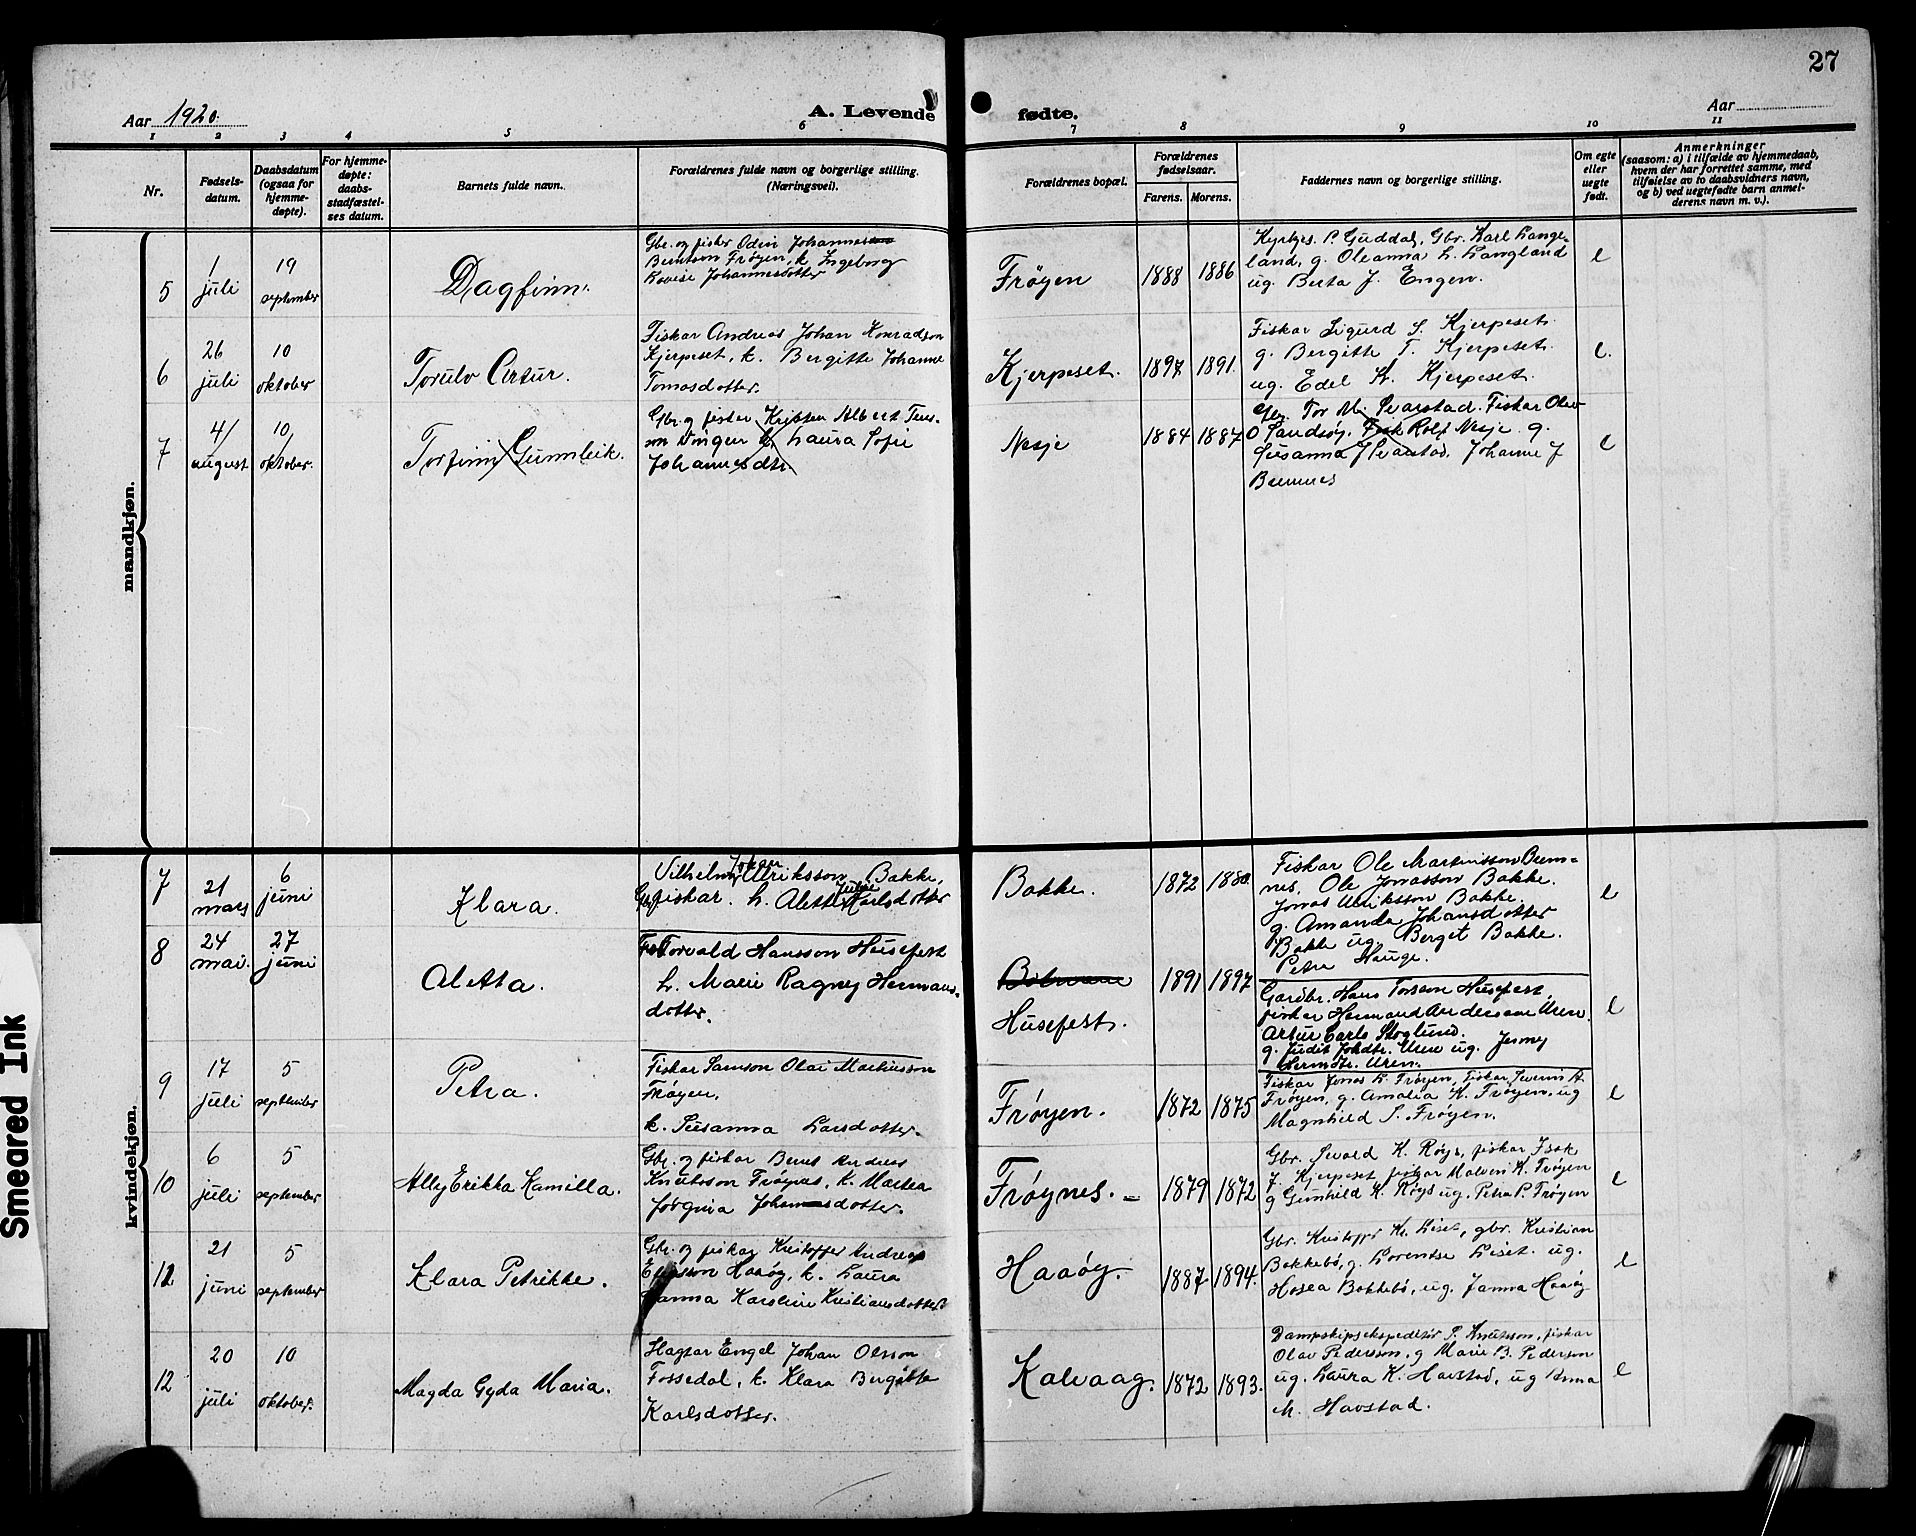 27
Aar 1920. A. Levende fødte. Aar
1 2 3 4 5 6 7 8 9 10 11
Nr.
Fødsels-
datum.
Daabsdatum
(ogsaa for
hjemme-
døpte).
For hjemme-
døpte:
daabs-
stadfæstel-
ses datum.
Barnets fulde navn.
Forældrenes fulde navn og borgerlige stilling.
(Næringsvei).
Forældrenes bopæl.
Forældrenes
fødselsaar.
Farens. Morens.
Faddernes navn og borgerlige stilling.
Om egte
eller
uegte
født.
Anmerkninger
(saasom: a) i tilfælde av hjemmedaab,
hvem der har forrettet samme, med
tilføielse av to daabsvidners navn,
og b) ved uegtefødte barn anmel-
derens navn m. v.).
mandkjøn.
5
1
juli
19
september
Dagfinn.
Gbr. og fisker Odin Johannes
Berntson Frøyen, k. Ingeborg
Lovise Johannesdotter
Frøyen
1888 1886
Kyrkjes. P. Guddal, Gbr. Karl Lange-
land, g. Oleanna L. Langland
ug. Berta J. Engen.
e
6
26
juli
10
oktober
Torulv Artur.
Fiskar Andreas Johan Konradson
Kjerpeset, k. Bergitte Johanne
Tomasdotter.
Kjerpeset.
1897 1891.
Fiskar Sigurd S. Kjerpeset.
g. Bergitte T. Kjerpeset.
ug. Edel K. Kjerpeset.
e.
7
4/
august
10/
oktober.
Torfinn Gunnleik.
Gbr. og fisker Kristen Albert
son k. Laura Sofie
Johannesdtr.
Nesje
1884 1887
Gbr. Tor M. Svarstad. Fiskar Olav
O Sandsøy. Fisk Rolf Nesje g.
Susanna J Svarstad. Johanne J
Bremnes
e
kvindekjøn.
7
21
mars
6
juni
Klara.
Johan
Vilhelm Ulriksson Bakke,
Julie
Gbr fiskar. h. Alette Karlsdotter
Bakke.
1872 1880.
Fiskar Ole Martinsson Brem-
nes, Ole Jonasson Bakke.
Jonas Ulriksson Bakke.
g. Amanda Johansdotter
Bakke ug. Berget Bakke.
Petra Hauge.
e
8
24
mai.
27
juni
Aletta.
Torvald Hansson Husefest
h. Marie Ragney Hermans-
dotter.
Husefest.
1891 1897
Gardbr. Hans Torsson Husefest,
fisker Hermand Andersson Uren.
Artur Carls Skoglund.
g. Judit Johdtr. Uren ug. Jenny
Hermdtr. Uren.
e
9
17
juli
5
september
Petra.
Fiskar Samson Olai Mathisson
Frøyen.
k. Susanna Larsdotter.
Frøyen.
1872 1875
Fiskar Jonas L. Frøyen, fiskar Severin A.
Frøyen, g. Amalia K. Frøyen, ug
Magnhild S. Frøyen.
e
10
6
juli
5
september
Ally Erikka Kamilla.
Gbr. og fiskar Bernt Andreas
Knutsson Frøynes, k. Martea
Jørgina Johannesdotter.
Frøynes.
1879 1872
Gbr. Sevald K. Røys, fiskar Isak
J. Kjerpeset fiskar Malvin K. Frøyen
g Gunhild K. Røys ug. Petra P. Frøyen
e
11
21
juni
5
september
Klara Petrikke.
Gbr. og fiskar Kristoffer Andreas
Haaøy, k. Laura
Janna Karoline Kristiansdotter
Haaøy.
1887 1894.
Gbr. Kristoffer Kr. Liset, gbr. Kristian
Bakkebø, g. Lorentse Liset. ug.
Hosea Bakkebø, ug. Janna Haaøy
e
12
20
juli
10
oktober.
Magda Gyda Maria.
Hagtar Engel Johan Olsson
Fossedal, k. Klara Bergitta
Karlsdotter.
Kalvaag.
1872 1893.
Dampskipsekspeditør P. Knutsson, fiskar
Olav Pederson, g Marie B. Pederson
ug. Laura K. Havstad, ug Anna
M. Havstad.
e
Smeared Ink